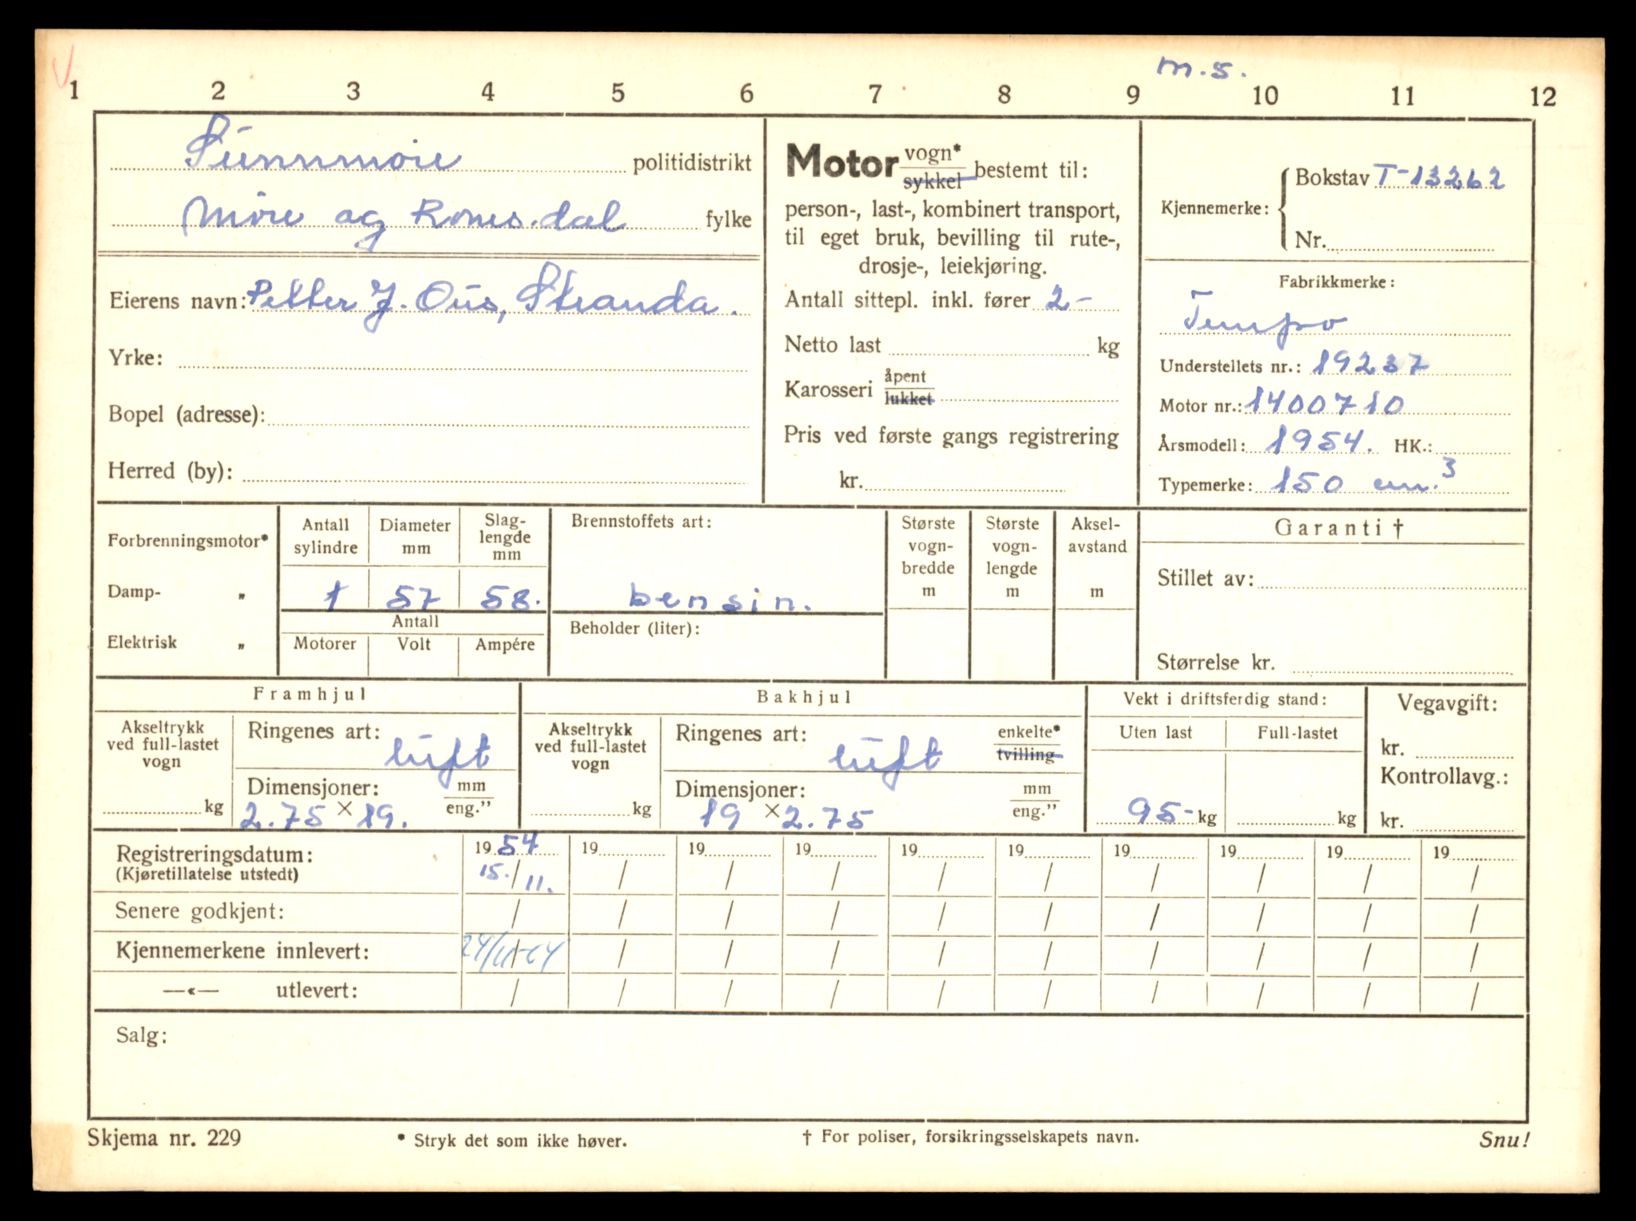 m.s.
1 2 3 4 5 6 7 8 9 10 11 12
Sunnmøre politidistrikt
Møre og Romsdal fylke
Eierens navn: Petter J. Ous, Stranda.
Yrke:
Bopel (adresse):
Herred (by):
Motor vogn* sykkel bestemt til:
person-, last-, kombinert transport,
til eget bruk, bevilling til rute-,
drosje-, leiekjøring.
Antall sittepl. inkl. fører 2-
Netto last kg
Karosseri åpent lukket
Pris ved første gangs registrering
kr.
Kjennemerke: Bokstav T-13262
Nr.
Fabrikkmerke:
Tempo
Understellets nr.: 19237
Motor nr.: 1400710
Årsmodell: 1954. HK.:
Typemerke: 150 cm.³
Forbrenningsmotor*
Damp- „
Elektrisk „
Antall sylindre
Diameter mm
Slaglengde mm
1 57 58.
Antall
Motorer Volt Ampére
Brennstoffets art:
bensin.
Beholder (liter):
Største vogn-bredde m
Største vogn-lengde m
Aksel-avstand m
Garanti †
Stillet av:
Størrelse kr.
Framhjul
Akseltrykk ved full-lastet vogn
kg
Ringenes art: luft
Dimensjoner: mm eng."
2.75 × 19.
Bakhjul
Akseltrykk ved full-lastet vogn
kg
Ringenes art: luft enkelte* tvilling
Dimensjoner: mm eng."
19 × 2.75
Vekt i driftsferdig stand:
Uten last Full-lastet
95- kg kg
Vegavgift:
kr.
Kontrollavg.:
kr.
Registreringsdatum: 19 54 19 19 19 19 19 19 19 19 19
(Kjøretillatelse utstedt) 15./11. / / / / / / / / /
Senere godkjent: / / / / / / / / / /
Kjennemerkene innlevert: / / / / / / / / /
—«— utlevert: / / / / / / / / / /
Salg:
Skjema nr. 229 * Stryk det som ikke høver. † For poliser, forsikringsselskapets navn. Snu!